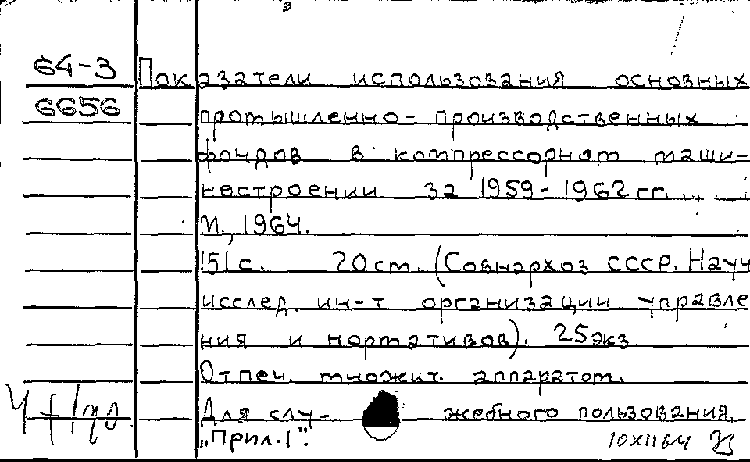 64-3 Показатели использования основных
6656 промышленно-производственных
фондов в компрессорном маши-
нестроении за 1959-1962 гг.
М., 1964.
151 с. 20 см. (Совнархоз СССР. Науч.
исслед. ин-т организации управле
ния и нормативов). 25 экз
Отпеч. множит. аппаратом.
Для слу- жебного пользования.
"Прил. 1".
10XII64